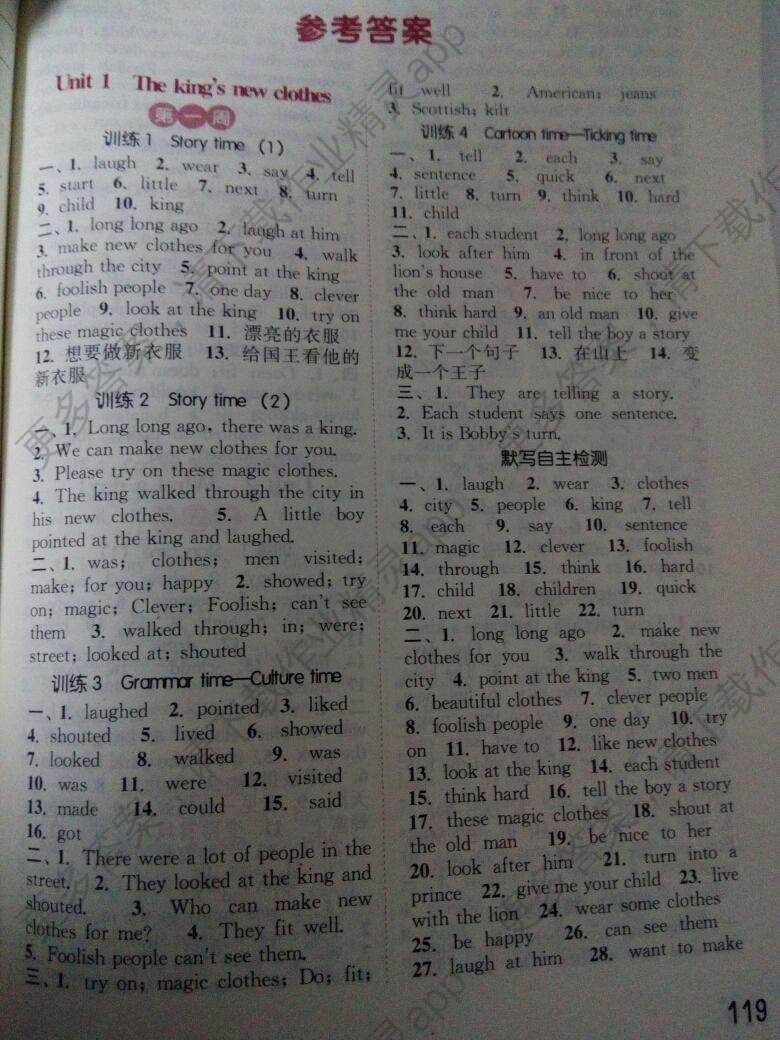 参考答案
Unit 1 The king's new clothes
第一周
训练1 Story time (1)
一、1. laugh 2. wear 3. say 4. tell
5. start 6. little 7. next 8. turn
9. child 10. king
二、1. long long ago 2. laugh at him
3. make new clothes for you 4. walk
through the city 5. point at the king
6. foolish people 7. one day 8. clever
people 9. look at the king 10. try on
these magic clothes 11. 漂亮的衣服
12. 想要做新衣服 13. 给国王看他的
新衣服
训练2 Story time (2)
一、1. Long long ago, there was a king.
2. We can make new clothes for you.
3. Please try on these magic clothes.
4. The king walked through the city in
his new clothes. 5. A little boy
pointed at the king and laughed.
二、1. was; clothes; men visited;
make; for you; happy 2. showed; try
on; magic; Clever; Foolish; can't see
them 3. walked through; in; were;
street; looked at; shouted
训练3 Grammar time—Culture time
一、1. laughed 2. pointed 3. liked
4. shouted 5. lived 6. showed
7. looked 8. walked 9. was
10. was 11. were 12. visited
13. made 14. could 15. said
16. got
二、1. There were a lot of people in the
street. 2. They looked at the king and
shouted. 3. Who can make new
clothes for me? 4. They fit well.
5. Foolish people can't see them.
三、1. try on; magic clothes; Do; fit;
fit well 2. American; jeans
3. Scottish; kilt
训练4 Cartoon time—Ticking time
一、1. tell 2. each 3. say
4. sentence 5. quick 6. next
7. little 8. turn 9. think 10. hard
11. child
二、1. each student 2. long long ago
3. look after him 4. in front of the
lion's house 5. have to 6. shout at
the old man 7. be nice to her
8. think hard 9. an old man 10. give
me your child 11. tell the boy a story
12. 下一个句子 13. 在山上 14. 变
成一个王子
三、1. They are telling a story.
2. Each student says one sentence.
3. It is Bobby's turn.
默写自主检测
一、1. laugh 2. wear 3. clothes
4. city 5. people 6. king 7. tell
8. each 9. say 10. sentence
11. magic 12. clever 13. foolish
14. through 15. think 16. hard
17. child 18. children 19. quick
20. next 21. little 22. turn
二、1. long long ago 2. make new
clothes for you 3. walk through the
city 4. point at the king 5. two men
6. beautiful clothes 7. clever people
8. foolish people 9. one day 10. try
on 11. have to 12. like new clothes
13. look at the king 14. each student
15. think hard 16. tell the boy a story
17. these magic clothes 18. shout at
the old man 19. be nice to her
20. look after him 21. turn into a
prince 22. give me your child 23. live
with the lion 24. wear some clothes
25. be happy 26. can see them
27. laugh at him 28. want to make
119
更多答案 请下载作业精灵app